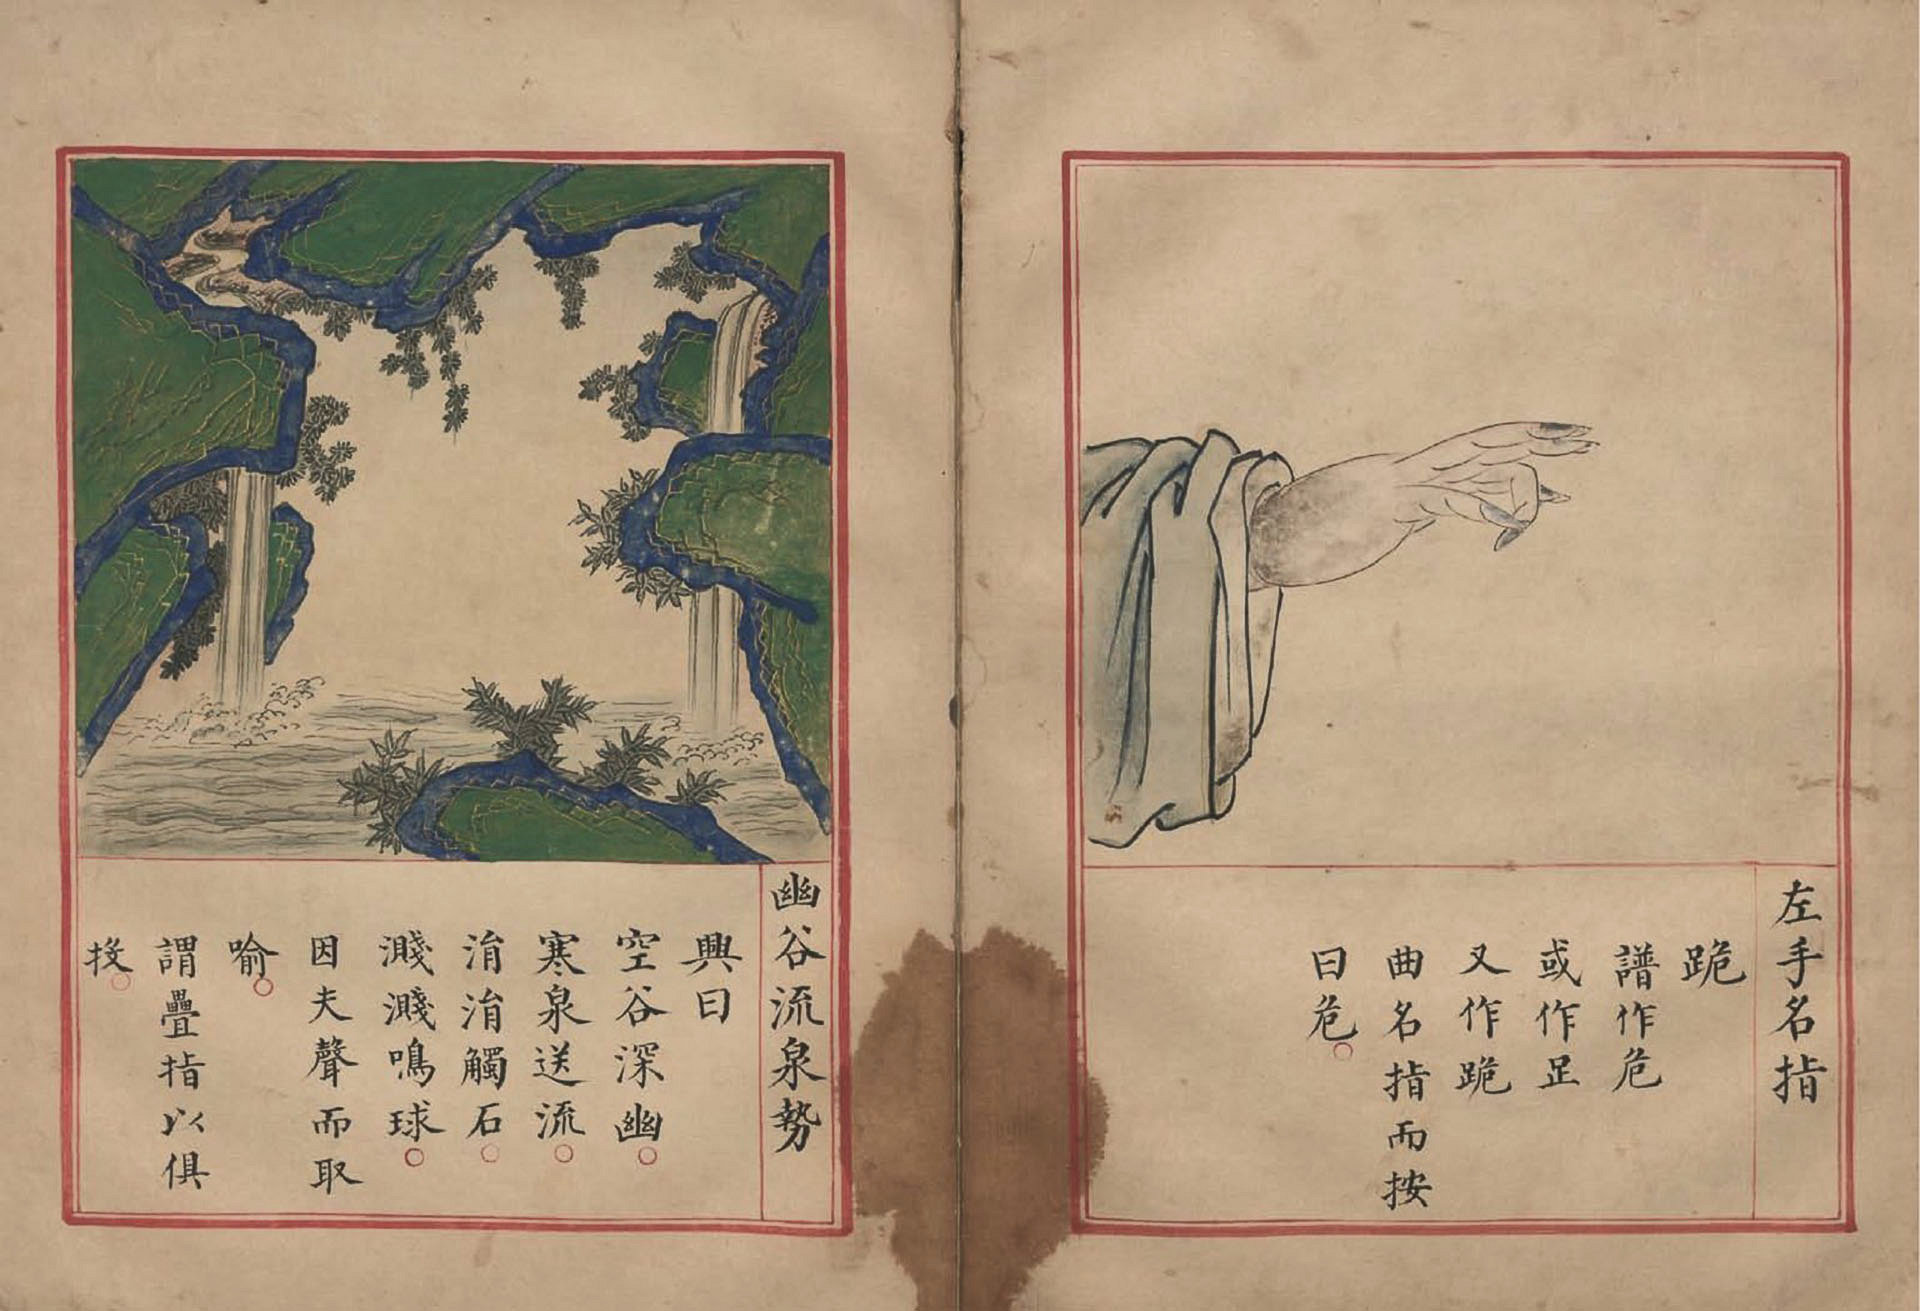 左手名指
跪
譜作危
或作足
又作跪
曲名指而按
曰危○
幽谷流泉勢
興曰
空谷深幽○
寒泉送流○
涓涓觸石○
濺濺鳴球○
因夫聲而取
喻○
謂疊指以俱
投○